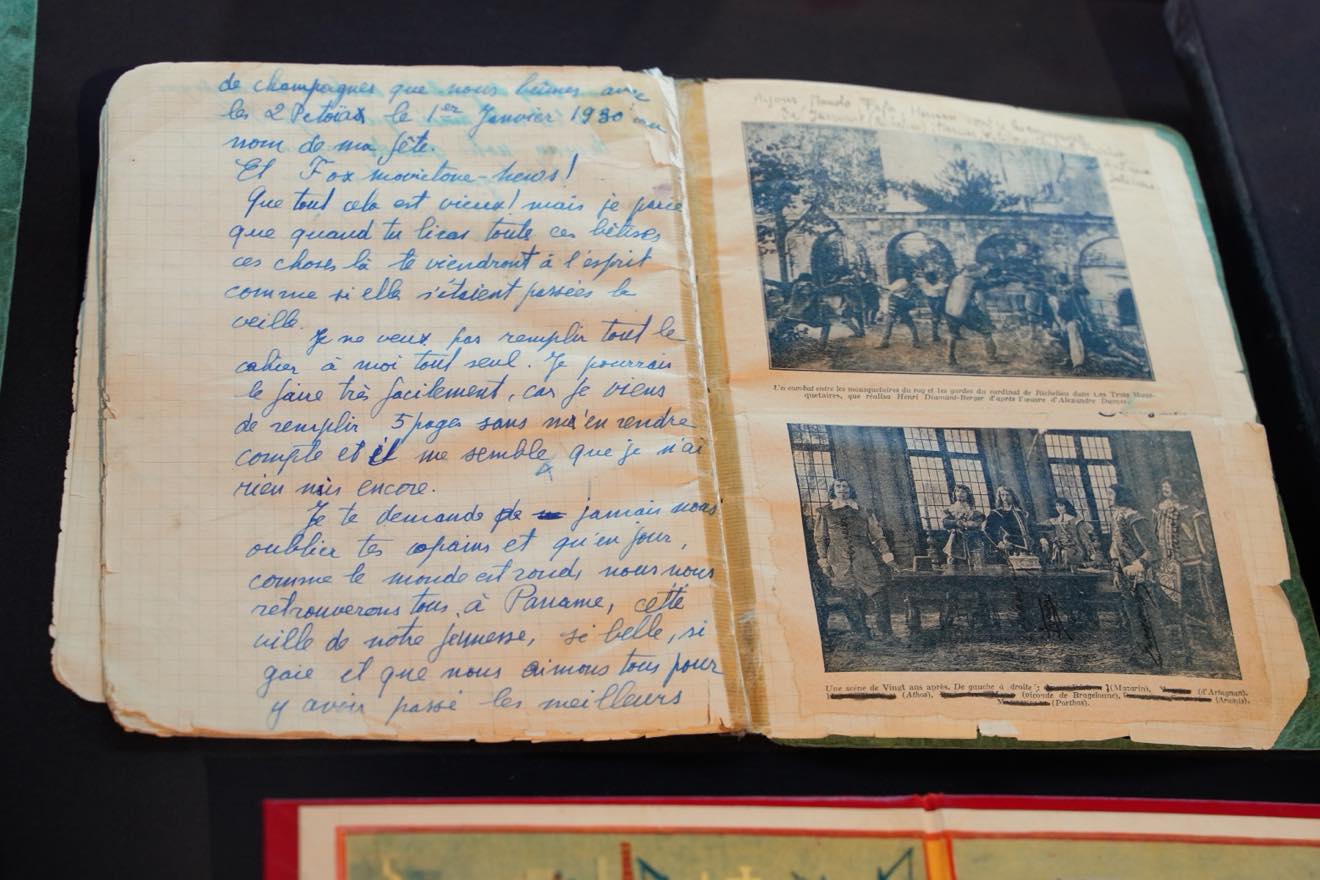 de champagnes que nous bûmes avec
les 2 Petoïas le 1er Janvier 1930 au
nom de ma fête.
Et Fox movietone-news!
Que tout cela est vieux! mais je parie
que quand tu liras toute ces bêtises
ces choses là te viendront à l'esprit
comme si elle s'étaient passées la
veille.
Je ne veux pas remplir tout le
cahier à moi tout seul. Je pourrais
le faire très facilement, car je viens
de remplir 5 pages sans m'en rendre
compte et il me semble que je n'ai
rien mis encore.
Je te demande de jamais nous
oublier tes copains et qu'un jour,
comme le monde est rond, nous nous
retrouverons tous à Paname, cette
ville de notre jeunesse, si belle, si
gaie et que nous aimons tous pour
y avoir passé les meilleurs
Un combat entre les mousquetaires du roy et les gardes du cardinal de Richelieu dans Les Trois Mous-
quetaires, que réalisa Henri Diamant-Berger d'après l'œuvre d'Alexandre Dumas
Une scène de Vingt ans après. De gauche à droite : (Mazarin), (d'Artagnan),
(Athos), (vicomte de Bragelonne), (Aramis),
(Porthos).